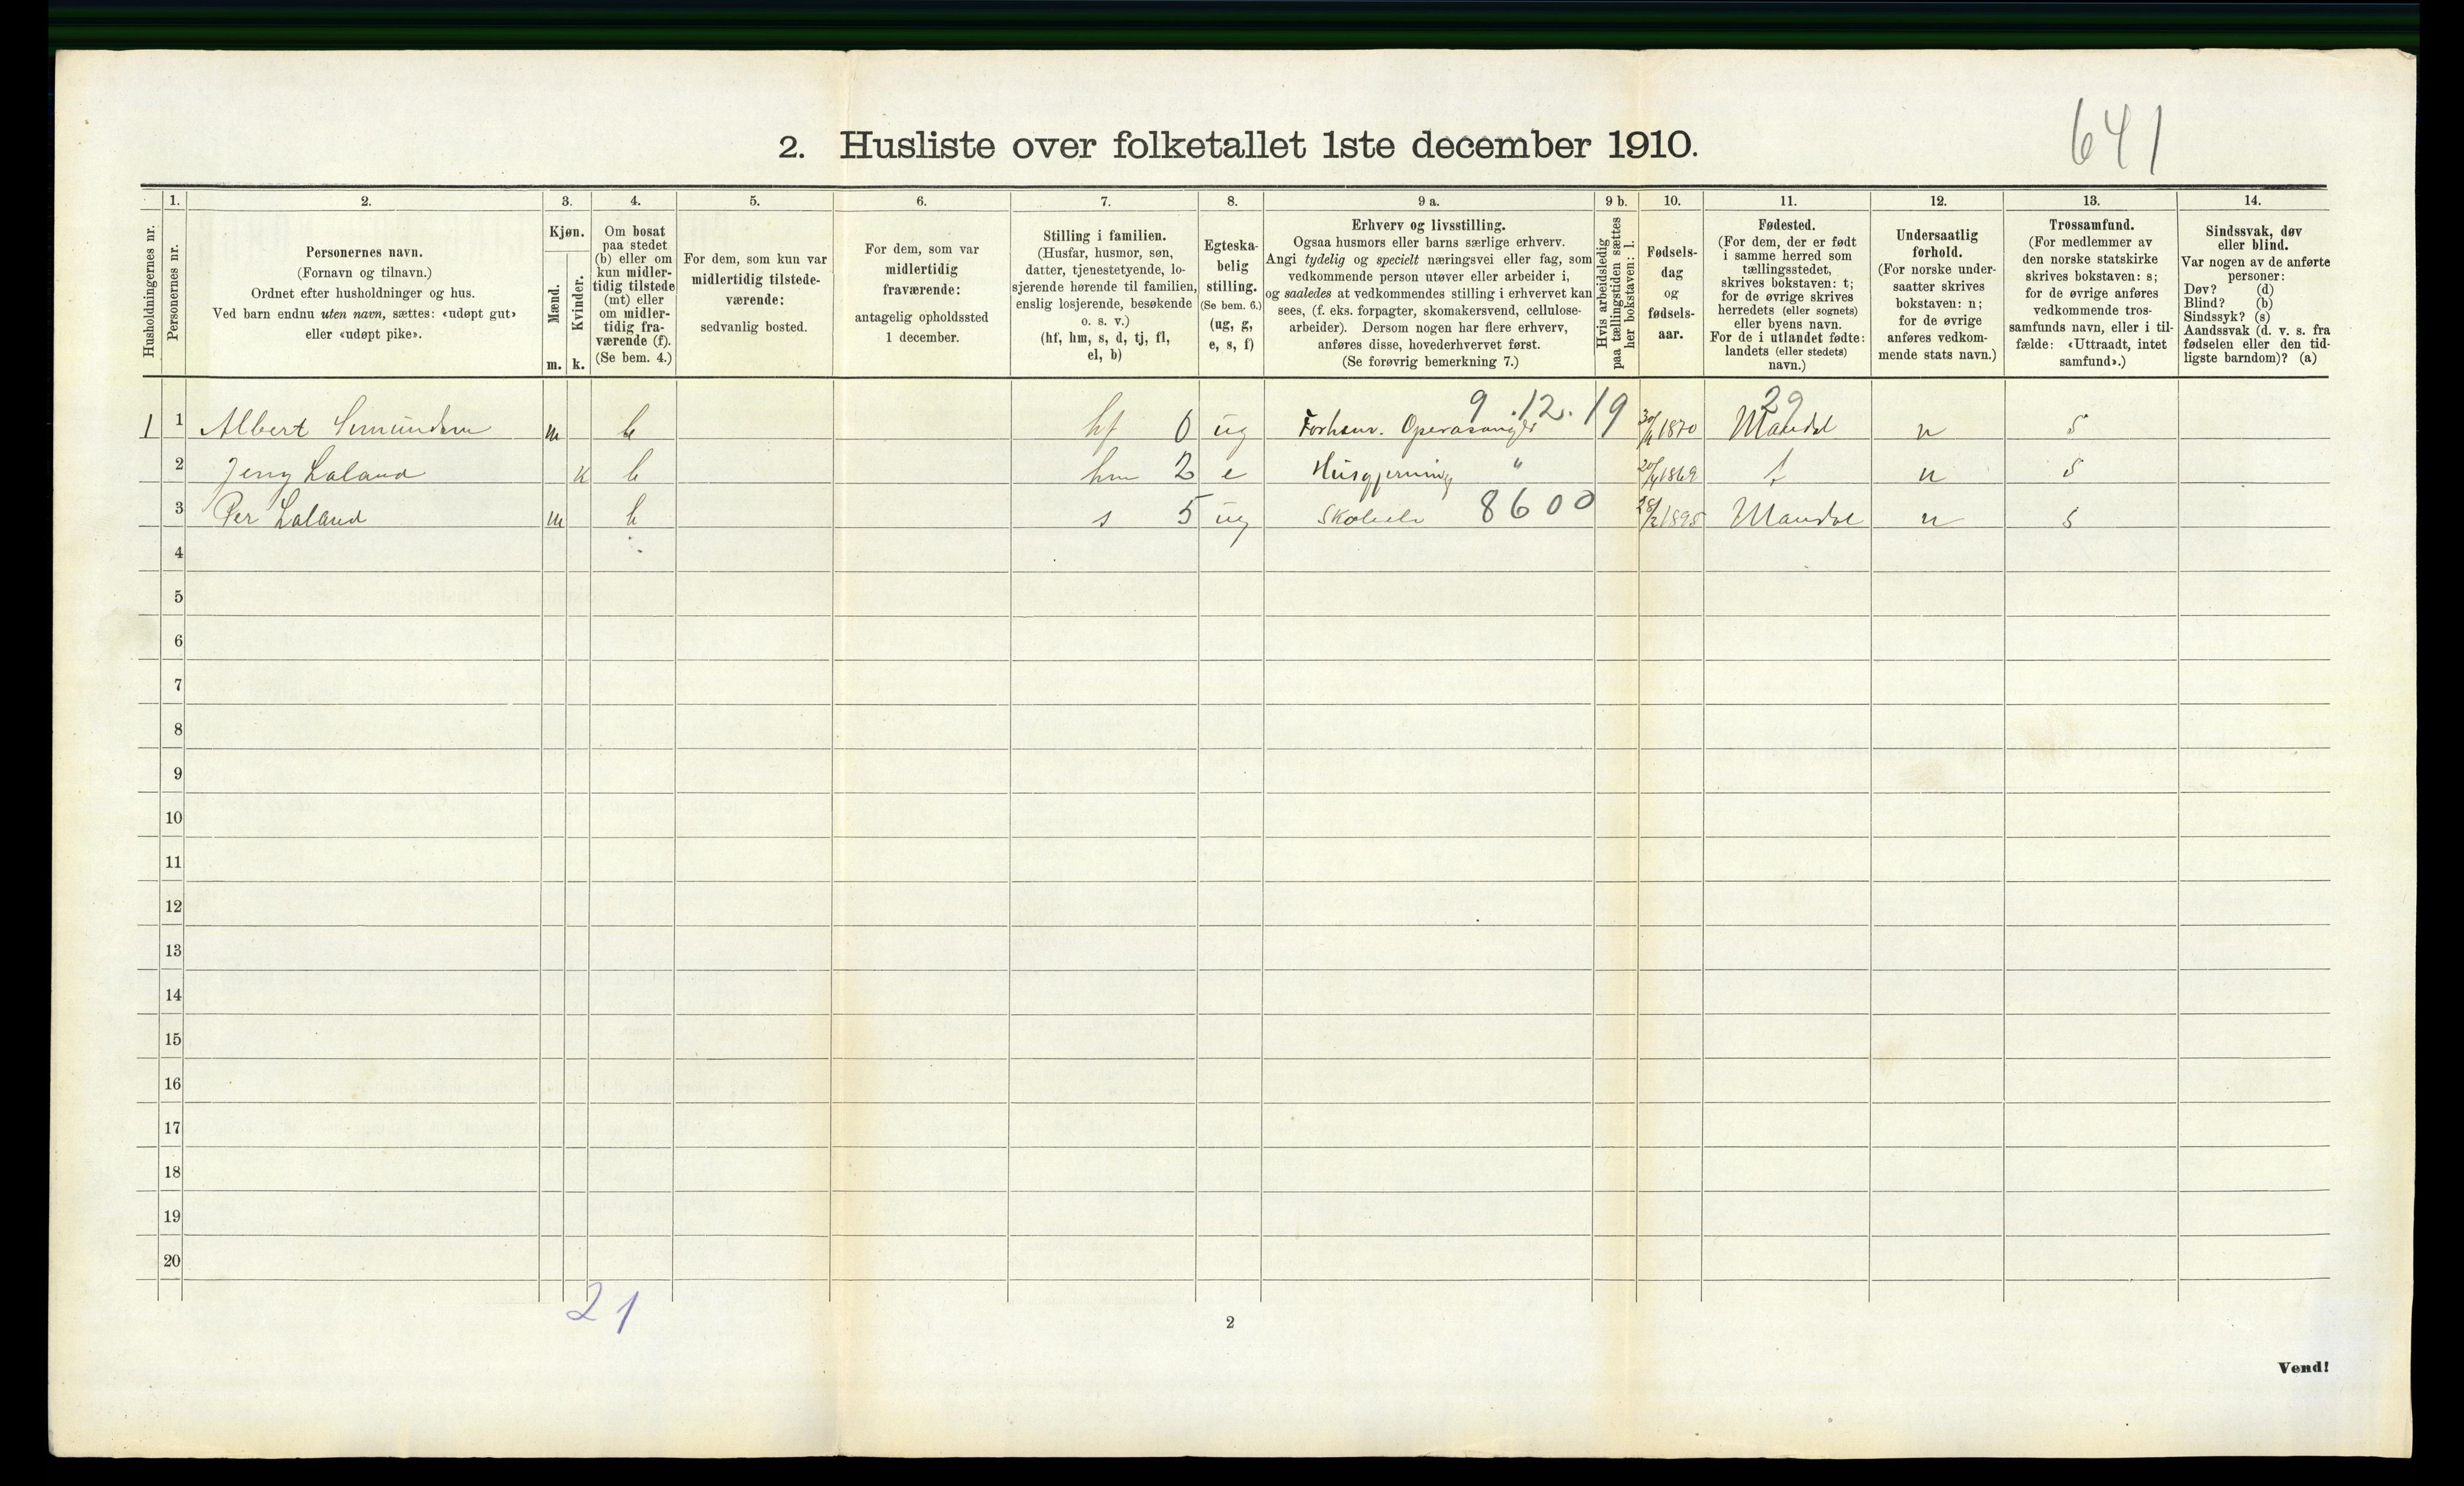 641
2. Husliste over folketallet 1ste december 1910.
Husholdningernes nr.
1.
Personernes nr.
2.
Personernes navn.
(Fornavn og tilnavn.)
Ordnet efter husholdninger og hus.
Ved barn endnu uten navn, sættes: «udøpt gut»
eller «udøpt pike».
3.
Kjøn.
Mænd.
Kvinder.
m. k.
4.
Om bosat
paa stedet
(b) eller om
kun midler-
tidig tilstede
(mt) eller
om midler-
tidig fra-
værende (f).
(Se bem. 4.)
5.
For dem, som kun var
midlertidig tilstede-
værende:
sedvanlig bosted.
6.
For dem, som var
midlertidig
fraværende:
antagelig opholdssted
1 december.
7.
Stilling i familien.
(Husfar, husmor, søn,
datter, tjenestetyende, lo-
sjerende hørende til familien,
enslig losjerende, besøkende
o. s. v.)
(hf, hm, s, d, tj, fl,
el, b)
8.
Egteska-
belig
stilling.
(Se bem. 6.)
(ug, g,
e, s, f)
9 a.
Erhverv og livsstilling.
Ogsaa husmors eller barns særlige erhverv.
Angi tydelig og specielt næringsvei eller fag, som
vedkommende person utøver eller arbeider i,
og saaledes at vedkommendes stilling i erhvervet kan
sees, (f. eks. forpagter, skomakersvend, cellulose-
arbeider). Dersom nogen har flere erhverv,
anføres disse, hovederhvervet først.
(Se forøvrig bemerkning 7.)
9 b.
Hvis arbeidsledig
paa tællingstiden sættes
her bokstaven: l.
10.
Fødsels-
dag
og
fødsels-
aar.
11.
Fødested.
(For dem, der er født
i samme herred som
tællingsstedet,
skrives bokstaven: t;
for de øvrige skrives
herredets (eller sognets)
eller byens navn.
For de i utlandet fødte:
landets (eller stedets)
navn.)
12.
Undersaatlig
forhold.
(For norske under-
saatter skrives
bokstaven: n;
for de øvrige
anføres vedkom-
mende stats navn.)
13.
Trossamfund.
(For medlemmer av
den norske statskirke
skrives bokstaven: s;
for de øvrige anføres
vedkommende tros-
samfunds navn, eller i til-
fælde: «Uttraadt, intet
samfund».)
14.
Sindssvak, døv
eller blind.
Var nogen av de anførte
personer:
Døv? (d)
Blind? (b)
Sindssyk? (s)
Aandssvak (d. v. s. fra
fødselen eller den tid-
ligste barndom)? (a)
9.12.19 29
1 1 Albert m b hf 0 ug Forhenv. Operasanger 1870 Mandal n s
2 Jeny Laland k b hm 2 e Husgjerning " 1869 t n s
3 Per Laland m b s 5 ug 8600 1895 Mandal n s
4
5
6
7
8
9
10
11
12
13
14
15
16
17
18
19
20
2 1
2
Vend!